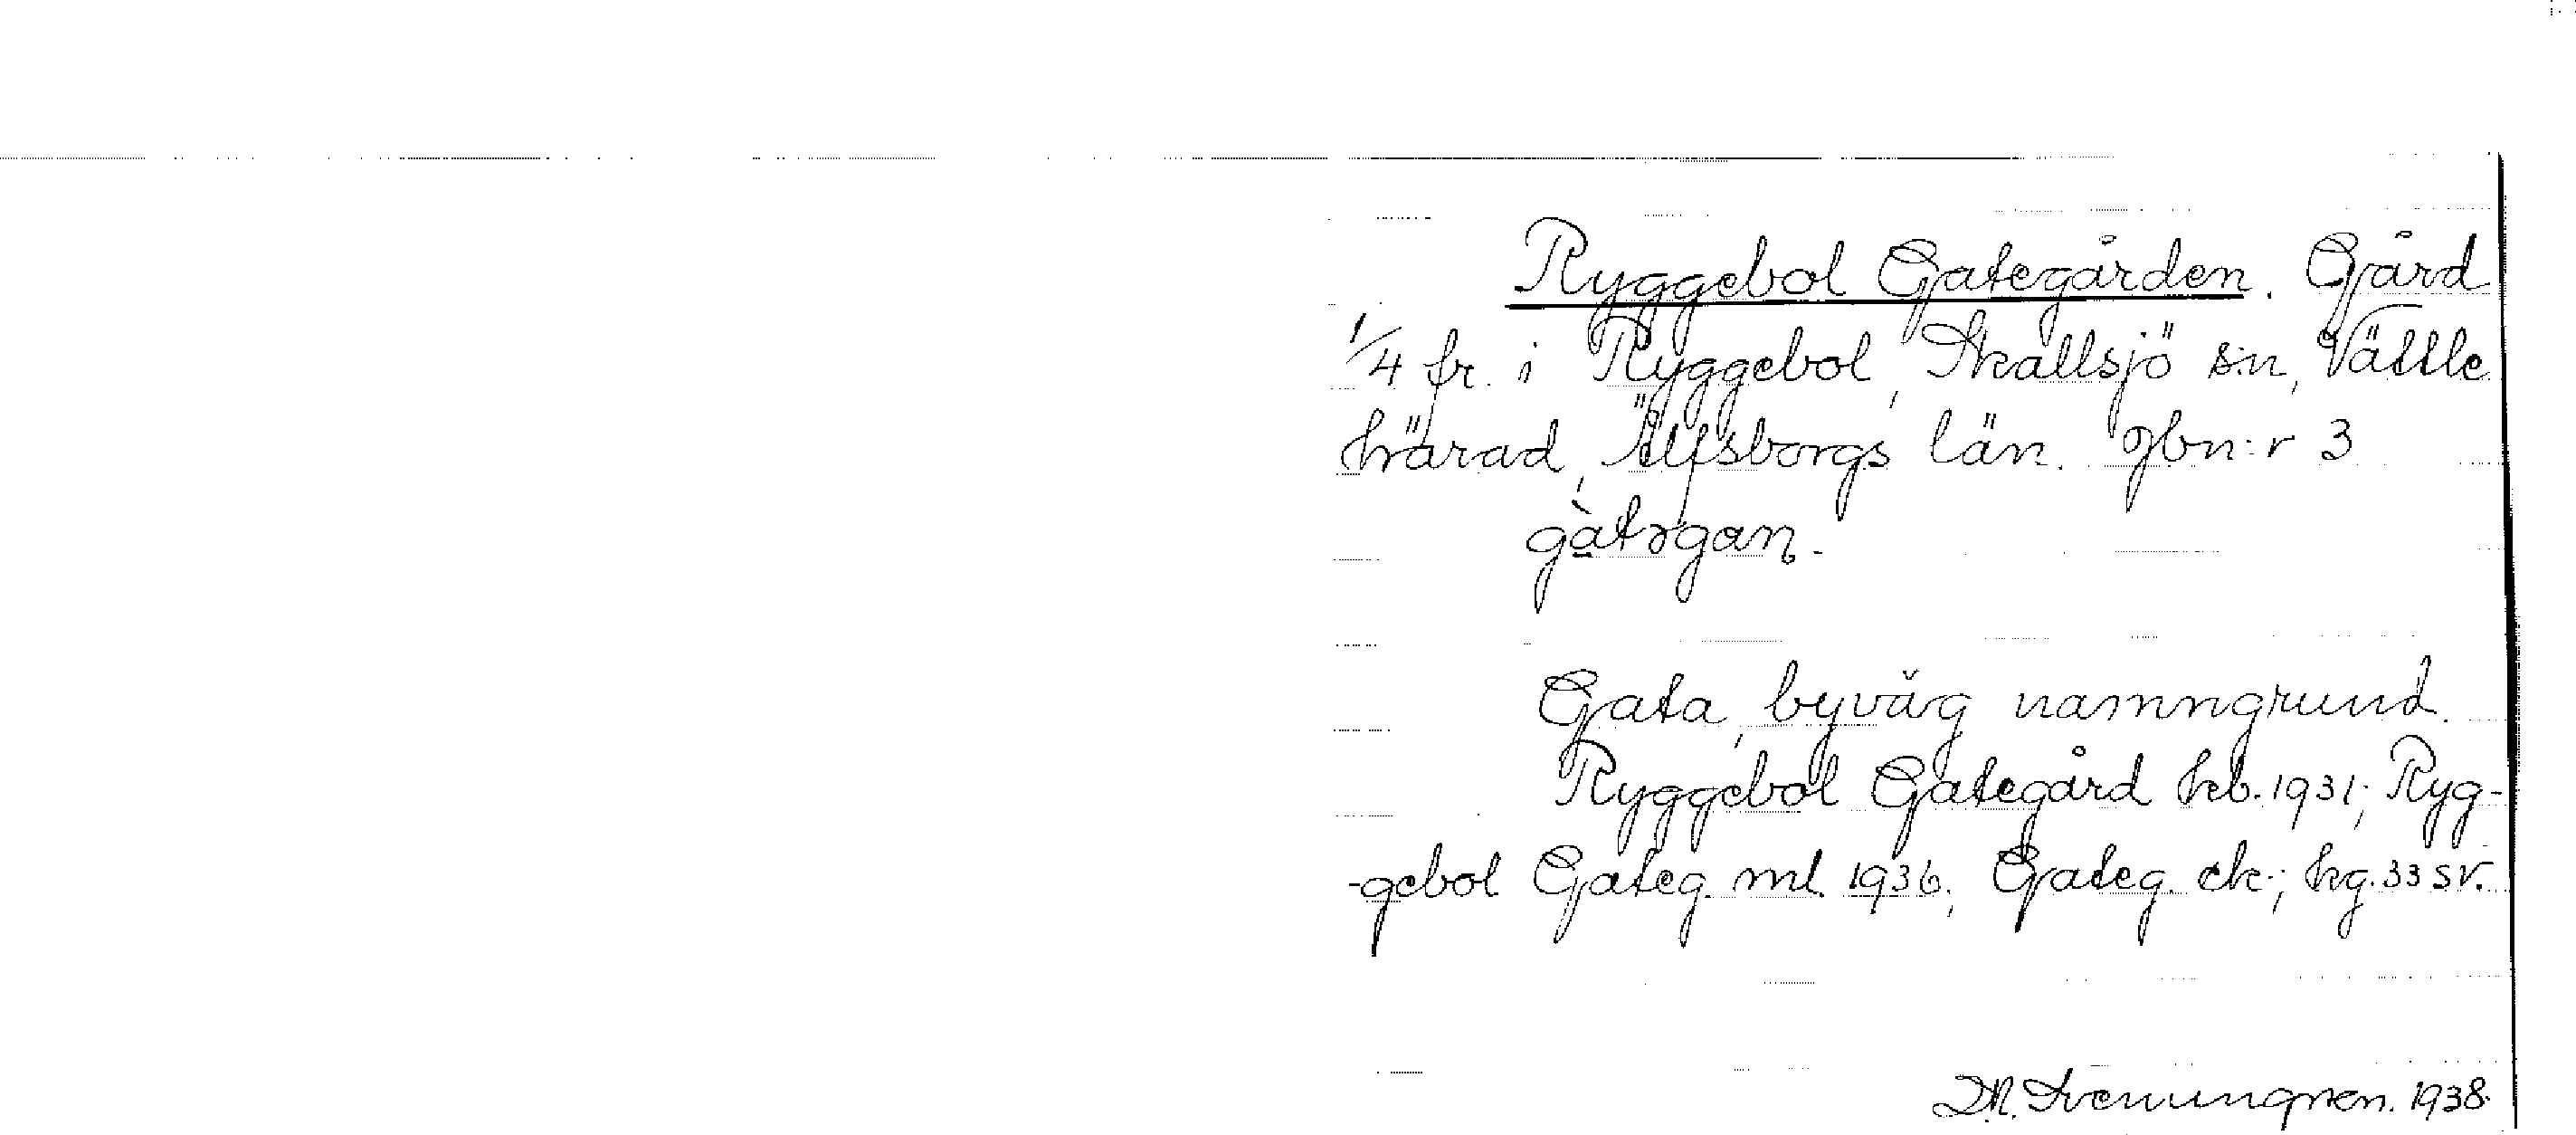 Ryggebol Gategården. Gård
1/4 fr. i Ryggebol, Skallsjö s:n, Vättle
härad, Älfsborgs län. Jbn:r 3
gàtəgan.
Gata, byväg namngrund.
Ryggebol Gategård hb. 1931; Ryg-
-gebol Gateg. ml. 1936; Gateg. ek.; kg. 33 SV.
1938.